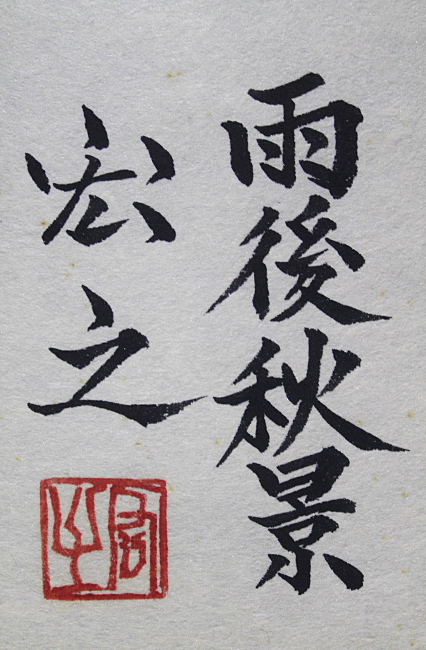 雨後秋景
宏之